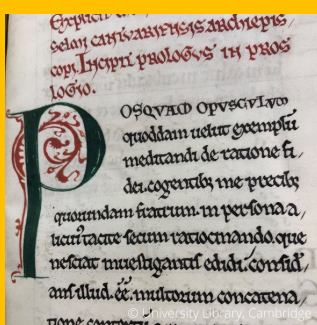 Explicit
selmi cantuariensis archiepis,
copi. Incipit prologus in pros
logio.
POSQVAM OPVSCVLVM
quoddam uelut exemplū
meditandi de ratione fi,
dei. cogentibȝ me precibȝ
quorundam fratrum. in persona a,
licui᷒ tacite secum ratiocinando. que
nesciat inuestigantis edidi. consid,
ans illud. ēē. multorum concatena,
tione
© University Library, Cambridge